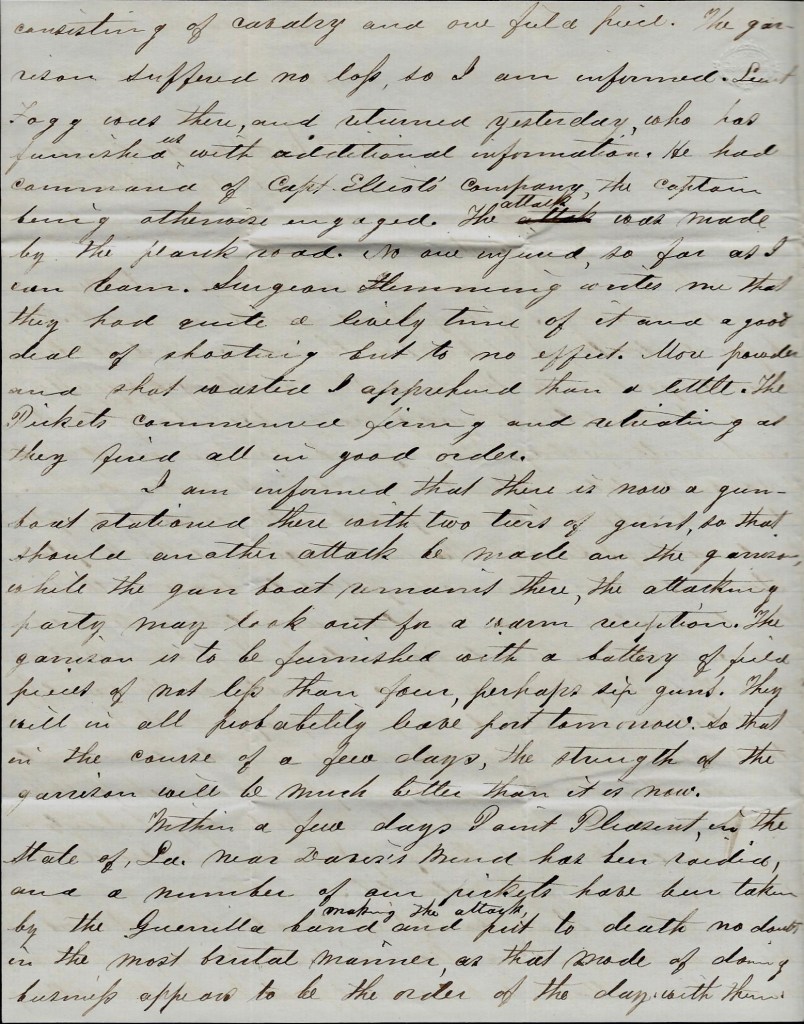 consisting of cavalry and one field piece. The gar-
rison suffered no loss, so I am informed. Lieut
Fogg was there, and returned yesterday, who has
furnished us with additional information. He had
command of Capt. Elliot's Company, the Captain
being otherwise engaged. The attack was made
by the plank road. No one injured, so far as I
can learn. Surgeon Flemming writes me that
they had quite a lively time of it and a good
deal of shooting but to no effect. More powder
and shot wasted I apprehend than a little. The
Pickets commenced firing and retreating as
they fired all in good order.
I am informed that there is now a gun-
boat stationed there with two tiers of guns, so that
should another attack be made on the garrison,
while the gun boat remains there, the attacking
party may look out for a warm reception. The
garrison is to be furnished with a battery of field
pieces of not less than four, perhaps six guns. They
will in all probability leave port tomorrow. So that
in the course of a few days, the strength of the
garrison will be much better than it is now.
Within a few days Point Pleasant, in the
State of, La. near Davis's Bend has been raided,
and a number of our pickets have been taken
by the Guerrilla band making the attack, and put to death no doubt
in the most brutal manner, as that mode of doing
business appears to be the order of the day with them.